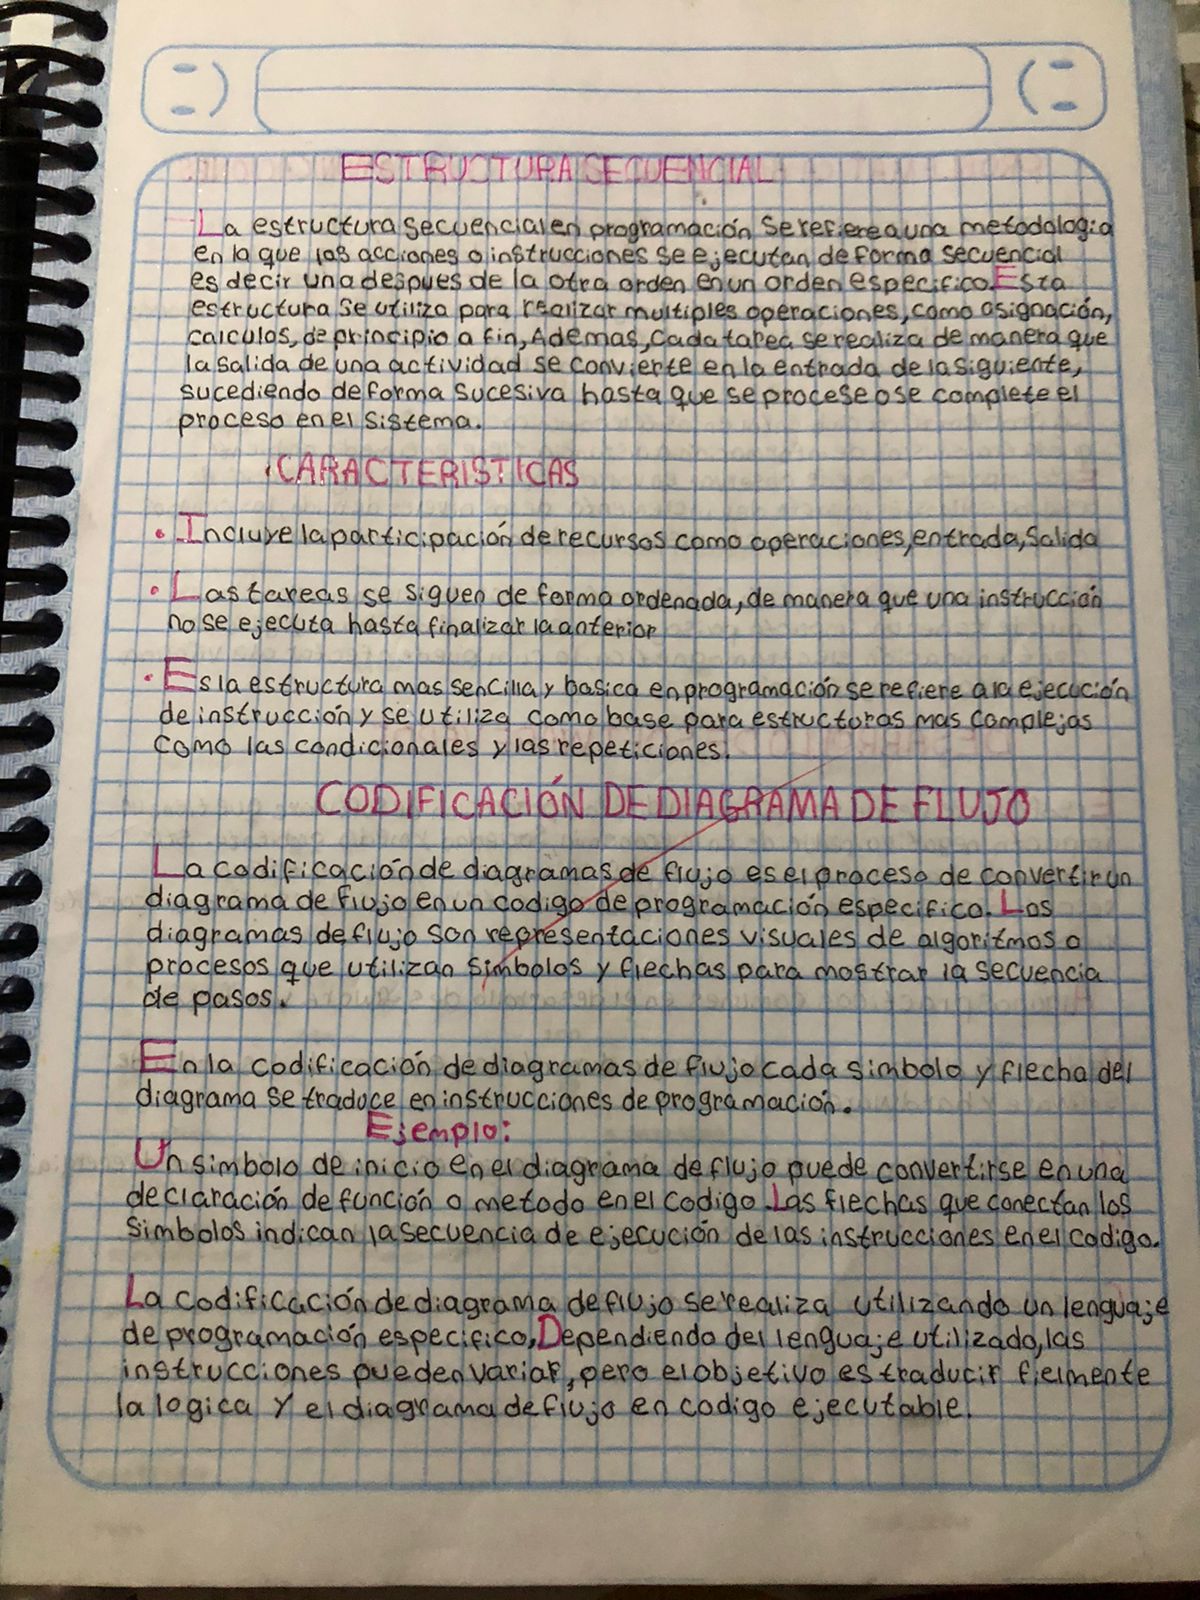 ESTRUCTURA SECUENCIAL
La estructura secuencial en programación Se refiere a una metodologia
en la que las acciones o instrucciones se ejecutan de forma secuencial
es decir una despues de la otra orden en un orden especifico. Esta
estructura Se utiliza para realizar multiples operaciones, como asignación,
calculos, de principio a fin, Ademas, Cada tarea se realiza de manera que
la salida de una actividad se convierte en la entrada de la siguiente,
sucediendo de forma sucesiva hasta que se procese o se complete el
proceso en el sistema.
CARACTERISTICAS
• Incluye la participación de recursos como operaciones, entrada, Salida
• Las tareas se siguen de forma ordenada, de manera que una instrucción
no se ejecuta hasta finalizar la anterior
• Es la estructura mas sencilla y basica en programación se refiere a la ejecución
de instrucción y se utiliza como base para estructuras mas complejas
como las condicionales y las repeticiones.
CODIFICACIÓN DE DIAGRAMA DE FLUJO
La codificación de diagramas de flujo es el proceso de convertir un
diagrama de flujo en un codigo de programación especifico. Los
diagramas de flujo son representaciones visuales de algoritmos o
procesos que utilizan simbolos y flechas para mostrar la secuencia
de pasos.
En la codificación de diagramas de flujo cada simbolo y flecha del
diagrama se traduce en instrucciones de programación.
Ejemplo:
Un simbolo de inicio en el diagrama de flujo puede convertirse en una
declaración de función o metodo en el codigo. Las flechas que conectan los
simbolos indican la secuencia de ejecución de las instrucciones en el codigo.
La codificación de diagrama de flujo se realiza utilizando un lenguaje
de programación especifico, Dependiendo del lenguaje utilizado, las
instrucciones pueden variar, pero el objetivo es traducir fielmente
la logica y el diagrama de flujo en codigo ejecutable.